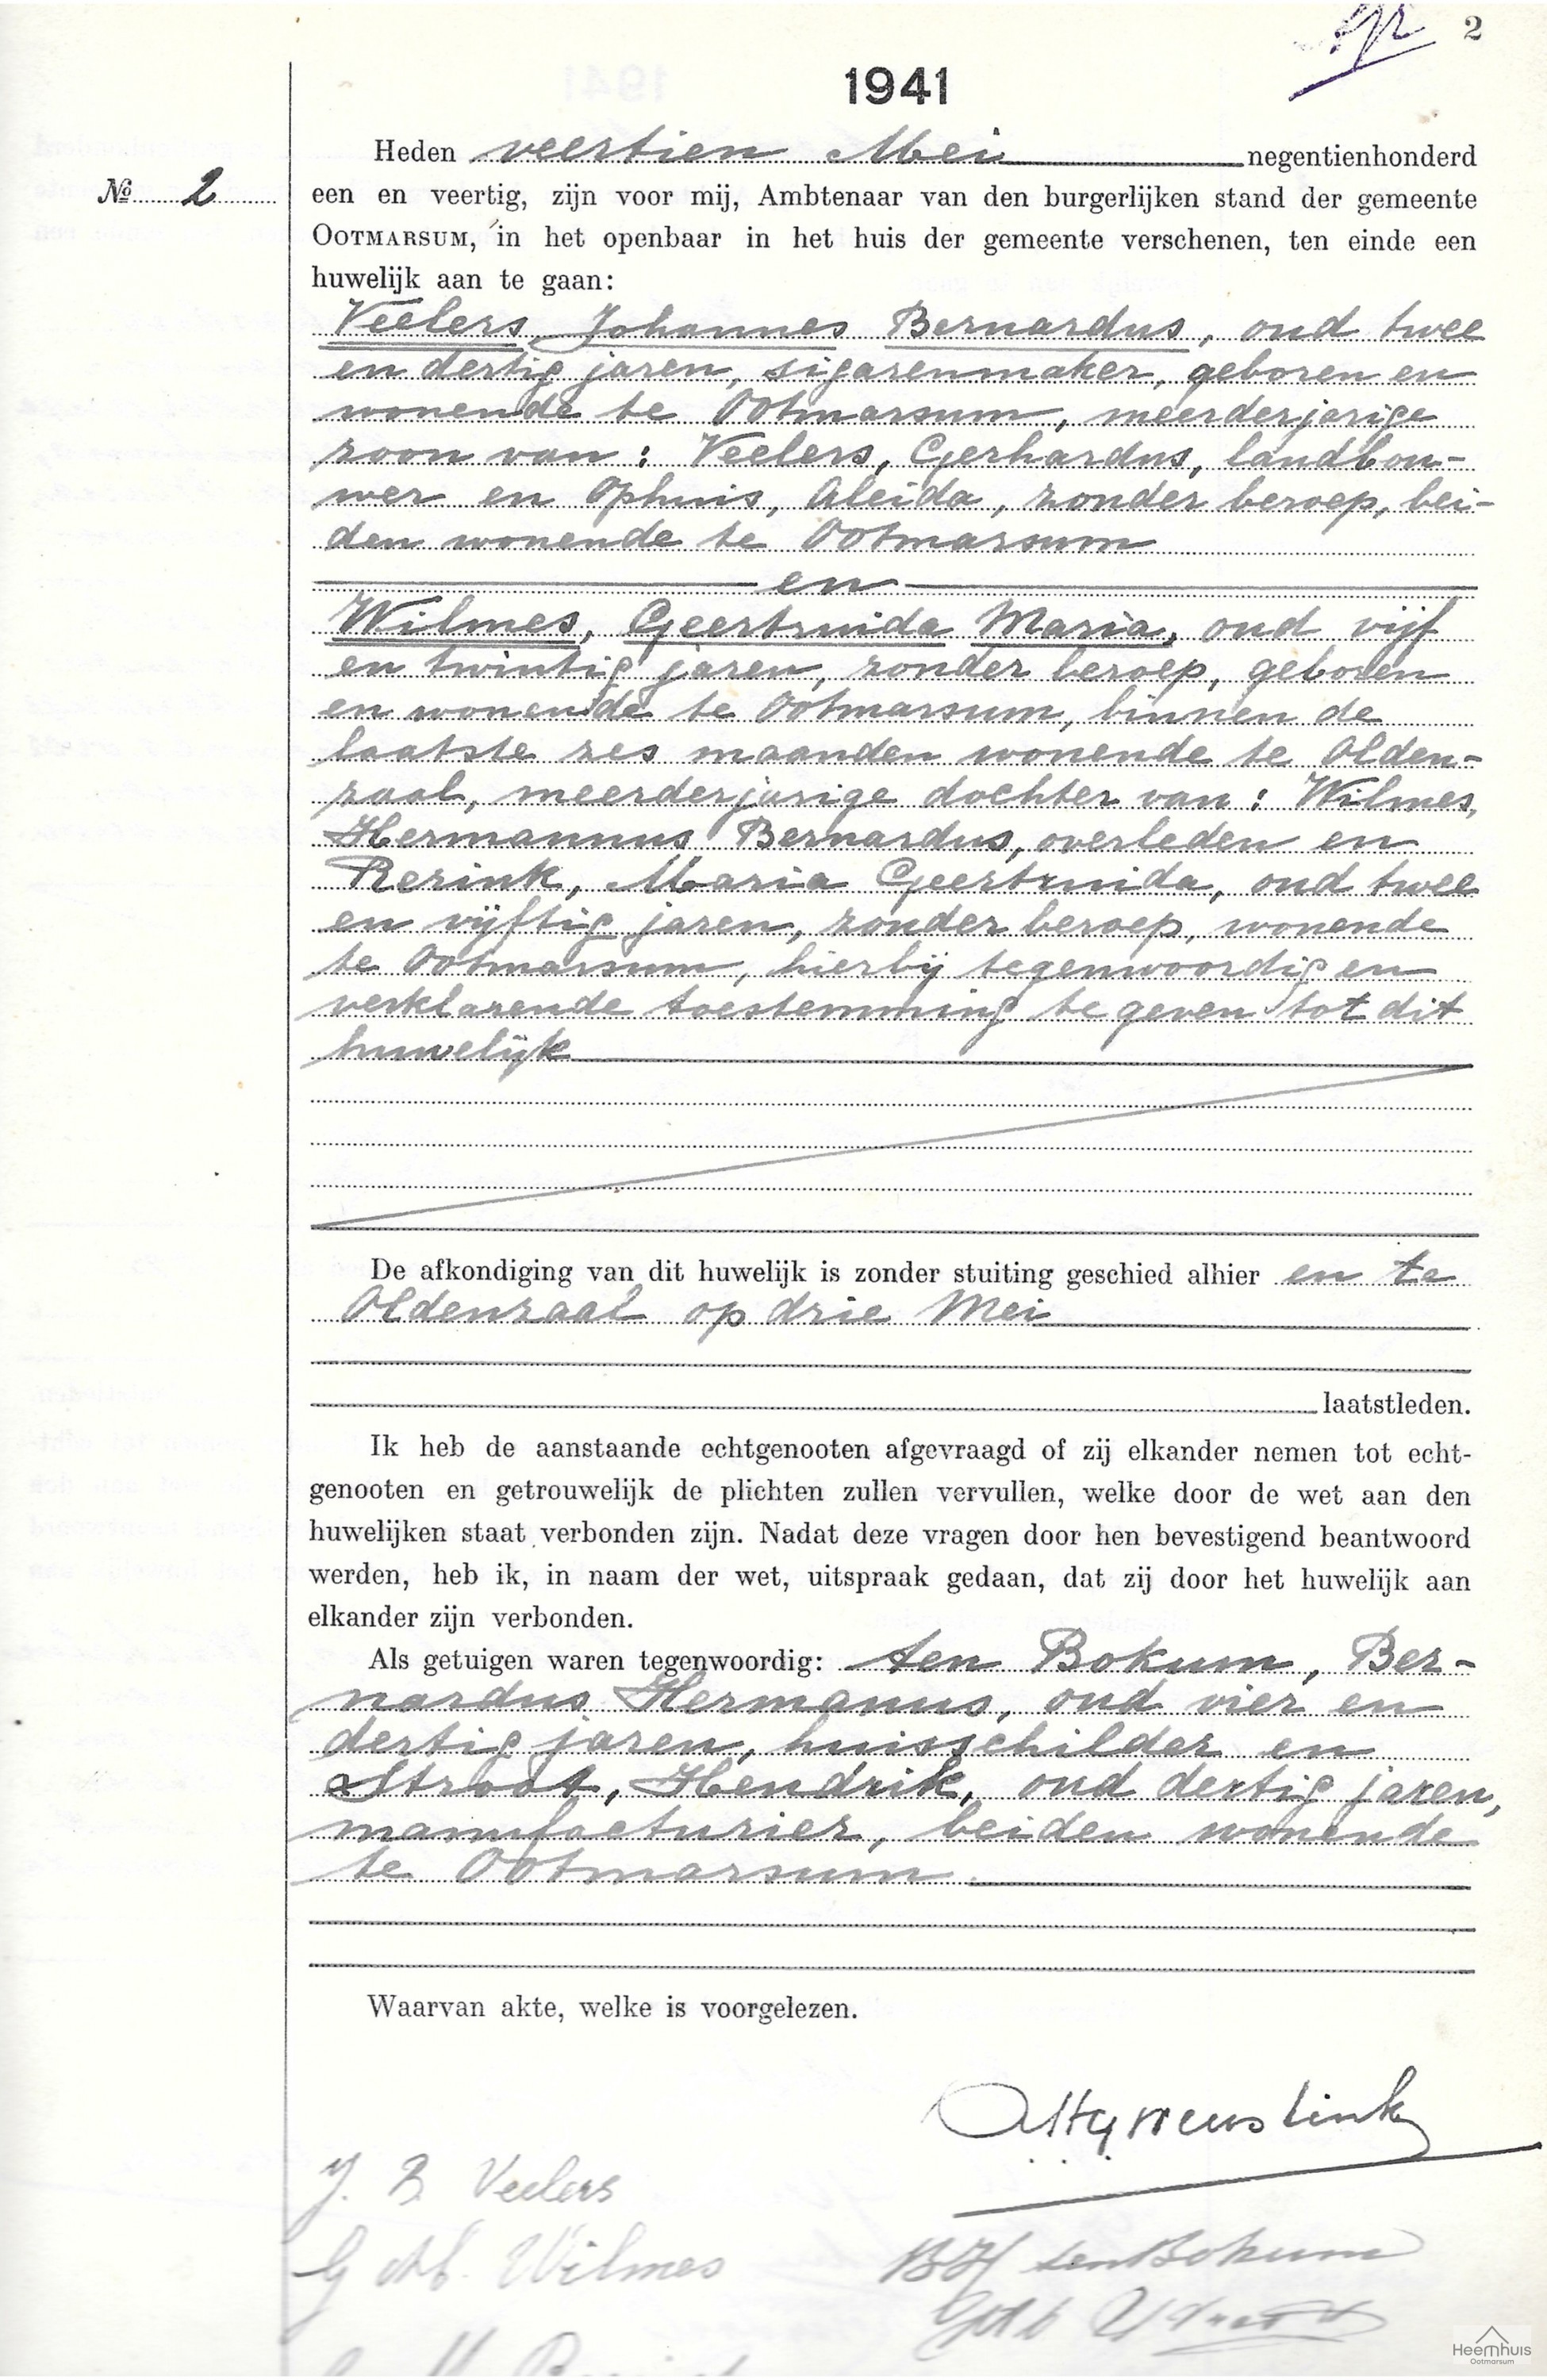 2
1941
Heden veertien Mei negentienhonderd
№ 2
een en veertig, zijn voor mij, Ambtenaar van den burgerlijken stand der gemeente
OOTMARSUM, in het openbaar in het huis der gemeente verschenen, ten einde een
huwelijk aan te gaan:
Veelers, Johannes Bernardus, oud twee
en dertig jaren, sigarenmaker, geboren en
wonende te Ootmarsum, meerderjarige
zoon van: Veelers, Gerhardus, landbou-
wer en Ophuis, Aleida, zonder beroep, bei-
den wonende te Ootmarsum
en
Wilmes, Geertruida Maria, oud vijf
en twintig jaren, zonder beroep, geboren
en wonende te Ootmarsum, binnen de
laatste zes maanden wonende te Olden-
zaal, meerderjarige dochter van: Wilmes,
Hermannus Bernardus, overleden en
Rerink, Maria Geertruida, oud twee
en vijftig jaren, zonder beroep, wonende
te Ootmarsum, hierbij tegenwoordig en
verklarende toestemming te geven tot dit
huwelijk
De afkondiging van dit huwelijk is zonder stuiting geschied alhier en te
Oldenzaal op drie Mei
laatstleden.
Ik heb de aanstaande echtgenooten afgevraagd of zij elkander nemen tot echt-
genooten en getrouwelijk de plichten zullen vervullen, welke door de wet aan den
huwelijken staat verbonden zijn. Nadat deze vragen door hen bevestigend beantwoord
werden, heb ik, in naam der wet, uitspraak gedaan, dat zij door het huwelijk aan
elkander zijn verbonden.
Als getuigen waren tegenwoordig: ten Bokum, Ber-
nardus Hermanus, oud vier en
dertig jaren, huisschilder en
Stroot, Hendrik, oud dertig jaren,
manufacturier, beiden wonende
te Ootmarsum
Waarvan akte, welke is voorgelezen.
J. B. Veelers
G M. Wilmes
BH ten Bokum
Heemhuis
Ootmarsum